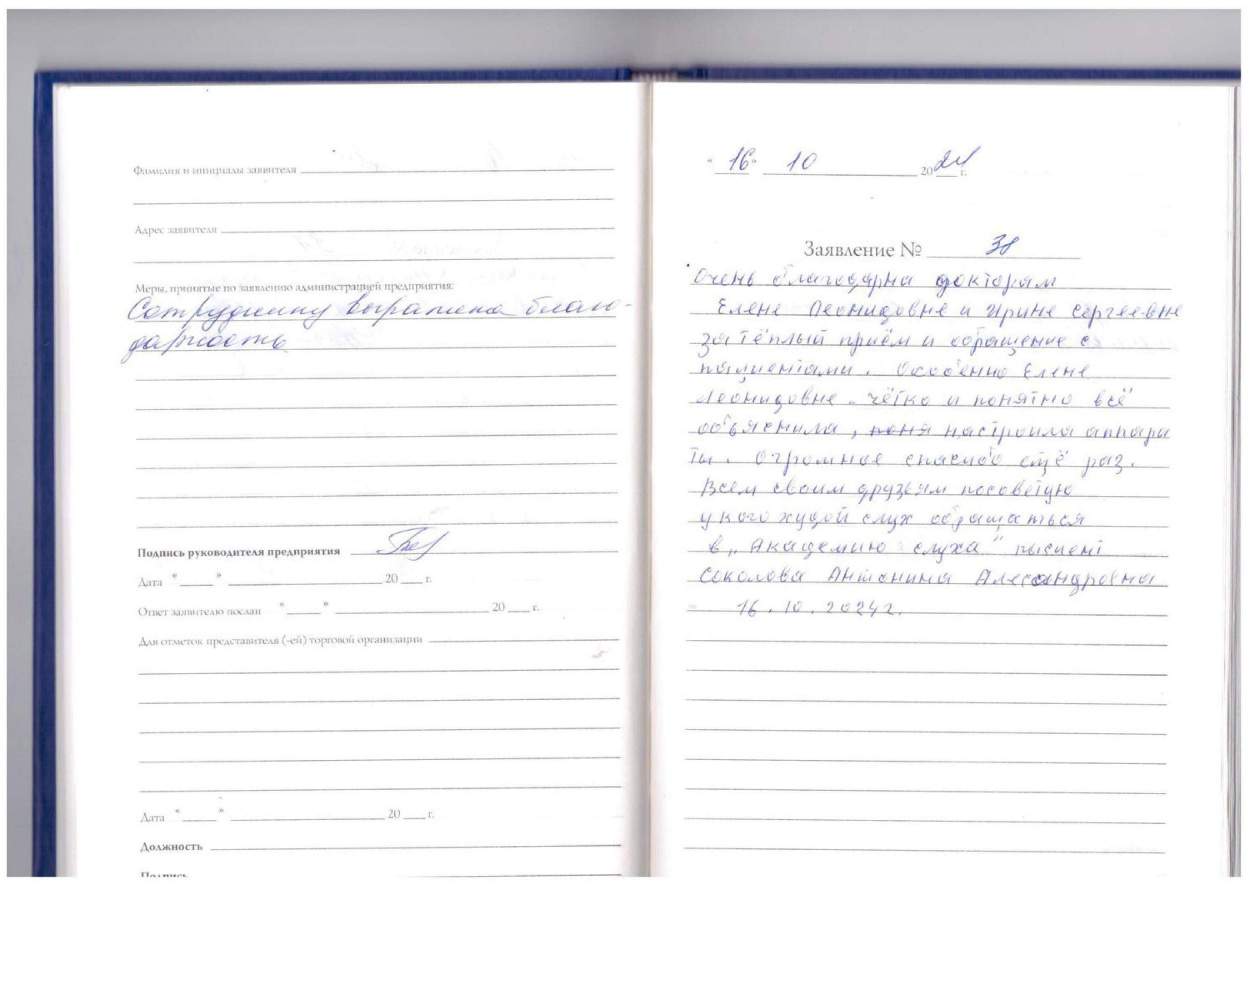 Фамилия и инициалы заявителя
Адрес заявителя
Меры, принятые по заявлению администрацией предприятия:
Сотруднику выражена благо-
дарность
Подпись руководителя предприятия
Дата " " 20 г.
Ответ заявителю послан " " 20 г.
Для отметок представителя (-ей) торговой организации
Дата " " 20 г.
Должность
Подпись
"16" 10 2024 г.
Заявление № 38
Очень благодарна докторам
Елене Леонидовне и Ирине Сергеевне
за тёплый приём и обращение с
пациентами. Особенно Елене
Леонидовне. чётко и понятно всё
объяснила, настроила аппара
ты. Огромное спасибо ещё раз.
Всем своим друзьям посоветую
у кого худой слух обращаться
в „Академию слуха"
Соколова Антонина Алесандровна
16.10.2024г.